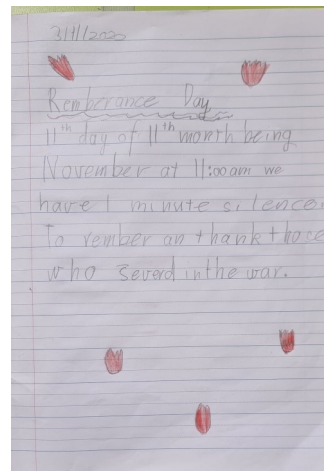 3/11/2020
Remberance Day
11th day of 11th month being
November at 11:00am we
have 1 minute silence
To rember an thank those
who severd in the war.